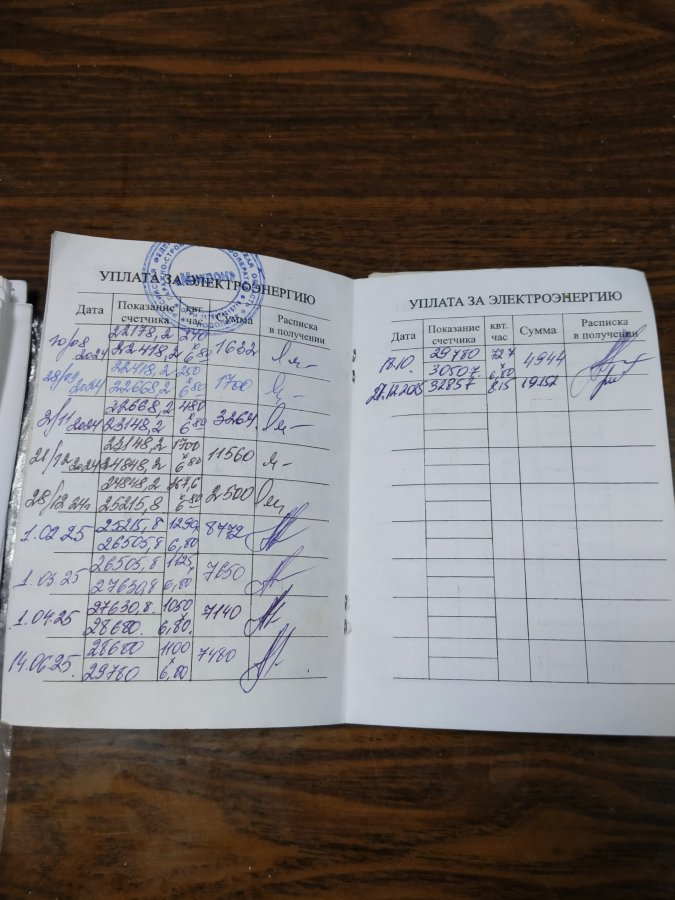 УПЛАТА ЗА ЭЛЕКТРОЭНЕРГИЮ
Дата Показание счетчика квт. час Сумма Расписка в получении
10/08 2024 22178,2 240 1632
22418,2 х 6 80
28/09 2024 22418,2 250 1700
22668,2 х 6 80
2/11 2024 22668,2 480 3264
23148,2 х 6 80
21/12 2024 23148,2 1700 11560
24848,2 х 6 80
28/12 24 24848,2 367,6 2500
25215,8 х 6 80
1.02.25 25215,8 1290 8772
26505,8 х 6,80
1.03.25 26505,8 1125 7650
27630,8 х 6,80
1.04.25 27630,8 1050 7140
28680 х 6,80
14.06.25 28680 1100 7480
29780 х 6,80
УПЛАТА ЗА ЭЛЕКТРОЭНЕРГИЮ
Дата Показание счетчика квт. час Сумма Расписка в получении
18.10. 29780 727 4944
30507 х 6,80
27.12.2025 32857 815